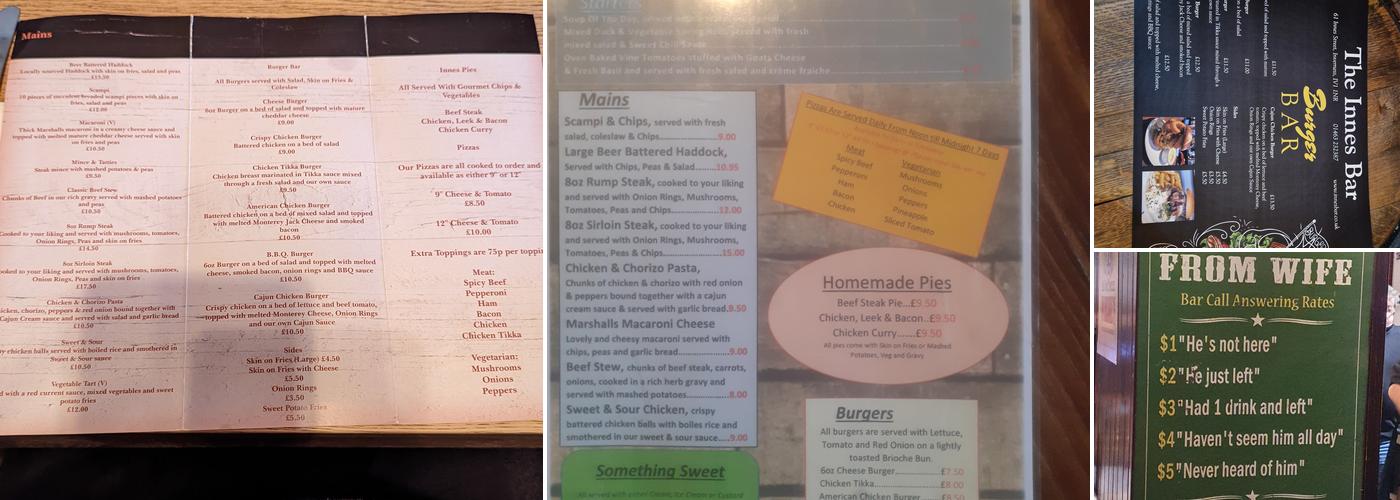 Mains
Beer Battered Haddock
Locally sourced Haddock with skin on fries, salad and peas
£13.50
Scampi
10 pieces of succulent breaded scampi pieces with skin on
fries, salad and peas
£12.00
Macaroni (V)
Thick Marshalls macaroni in a creamy cheese sauce and
topped with mature cheddar cheese served with skin
on fries and peas
£10.50
Mince & Tatties
Steak mince with mashed potatoes and peas
£9.50
Classic Beef Stew
Chunks of Beef in our rich gravy served with mashed potatoes
and peas
£10.50
8oz Rump Steak
Cooked to your liking and served with mushrooms, tomatoes,
Onion Rings, Peas and skin on fries
£14.50
8oz Sirloin Steak
cooked to your liking and served with mushrooms, tomatoes,
Onion Rings, Peas and skin on fries
£17.50
Chicken & Chorizo Pasta
chicken, chorizo, peppers & red onion bound together with
Cajun Cream sauce and served with salad and garlic bread
£10.50
Sweet & Sour
chicken balls with boiled rice and smothered in
Sweet & Sour sauce
£10.50
Vegetable Tart (V)
with a red currant sauce, mixed vegetables and sweet
potato fries
£12.00
Burger Bar
All Burgers served with Salad, Skin on Fries &
Coleslaw
Cheese Burger
6oz Burger on a bed of salad and topped with mature
cheddar cheese
£9.00
Crispy Chicken Burger
Battered chicken on a bed of salad
£9.00
Chicken Tikka Burger
Chicken breast marinated in Tikka sauce mixed
through a fresh salad and our own sauce
£9.50
American Chicken Burger
Battered chicken on a bed of mixed salad and topped
with melted Monterey Jack Cheese and smoked
bacon
£10.50
B.B.Q. Burger
6oz Burger on a bed of salad and topped with melted
cheese, smoked bacon, onion rings and BBQ sauce
£10.50
Cajun Chicken Burger
Crispy chicken on a bed of lettuce and beef tomato,
topped with melted Monterey Cheese, Onion Rings
and our own Cajun Sauce
£10.50
Sides
Skin on Fries (Large) £4.50
Skin on Fries with Cheese
£5.50
Onion Rings
£3.50
Sweet Potato Fries
£5.50
Innes Pies
All Served With Gourmet Chips &
Vegetables
Beef Steak
Chicken, Leek & Bacon
Chicken Curry
Pizzas
Our Pizzas are all cooked to order and
available as either 9" or 12"
9" Cheese & Tomato
£8.50
12" Cheese & Tomato
£10.00
Extra Toppings are 75p per
Meat:
Spicy Beef
Pepperoni
Ham
Bacon
Chicken
Chicken Tikka
Vegetarian:
Mushrooms
Onions
Peppers
Starters
Soup Of The Day, served
Mixed Duck & Vegetable served with fresh
mixed salad & Sweet Chilli Sauce
Oven Baked Vine Tomatoes stuffed with Goats Cheese
& Fresh Basil and served with fresh salad and crème fraiche
Mains
Scampi & Chips, served with fresh
salad, coleslaw & Chips 9.00
Large Beer Battered Haddock,
Served with Chips, Peas & Salad 10.95
8oz Rump Steak, cooked to your liking
and served with Onion Rings, Mushrooms,
Tomatoes, Peas and Chips 12.00
8oz Sirloin Steak, cooked to your liking
and served with Onion Rings, Mushrooms,
Tomatoes, Peas and Chips 15.00
Chicken & Chorizo Pasta,
Chunks of chicken & chorizo with red onion
& peppers bound together with a cajun
cream sauce & served with garlic bread.9.50
Marshalls Macaroni Cheese
Lovely and cheesy macaroni served with
chips, peas and garlic bread 9.00
Beef Stew, chunks of beef steak, carrots,
onions, cooked in a rich herb gravy and
served with mashed potatoes 8.00
Sweet & Sour Chicken, crispy
battered chicken balls with boiles rice and
smothered in our sweet & sour sauce....9.00
Something Sweet
Pizzas Are Served Daily From Noon till Midnight 7 Days
Meat
Spicy Beef
Pepperoni
Ham
Bacon
Chicken
Vegetarian
Mushrooms
Onions
Peppers
Pineapple
Sliced Tomato
Homemade Pies
Beef Steak Pie...£9.50
Chicken, Leek & Bacon..£9.50
Chicken Curry......£9.50
All pies come with Skin on Fries or Mashed
Potatoes, Veg and Gravy
Burgers
All burgers are served with Lettuce,
Tomato and Red Onion on a lightly
toasted Brioche Bun.
6oz Cheese Burger £7.50
Chicken Tikka £8.00
American Chicken Burger £9.50
The Innes Bar
61 Innes Street, Inverness, IV1 1NR 01463 232387 www.innesbar.co.uk
Burger
BAR
Cajun Chicken Burger £13.50
Sides
Skin on Fries (Large) £4.50
Skin on Fries with Cheese £5.50
Onion Rings £3.50
Sweet Potato Fries £5.50
FROM WIFE
Bar Call Answering Rates
$1 "He's not here"
$2 "He just left"
$3 "Had 1 drink and left"
$4 "Haven't seem him all day"
$5 "Never heard of him"